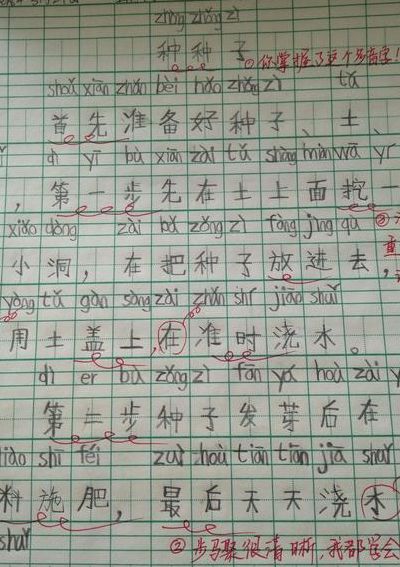 zhòng zhǒng zǐ
种种子 ①你掌握了这个多音字!
shoǔ xiān zhǔn bèi hǎo zhǒng zǐ tǔ
首先准备好种子、土
dì yī bù xiān zài tǔ shàng miàn wā yī
,第一步先在土上面挖一
xiǎo dòng zài bǎ zǒng zǐ fàng jìng qù ③
小洞,在把种子放进去, 重
yòng tǔ gàn sàng zài zhǔn shí jiāo shuǐ
用土盖上,在准时浇水。
dì er bù zǒng zǐ fān yá hoù zài y
第二步种子发芽后在
liào shī féi zuì hoù tiān tiān jiā shuǐ
料施肥,最后天天浇水
shuǐ
②步骤很清晰,我都学会